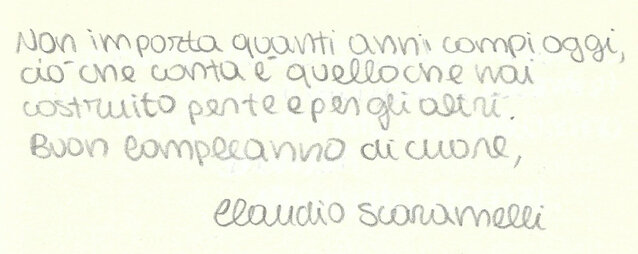 Non importa quanti anni compi oggi,
ciò che conta è quello che hai
costruito per te e per gli altri.
Buon compleanno di cuore,
Claudio Scaramelli